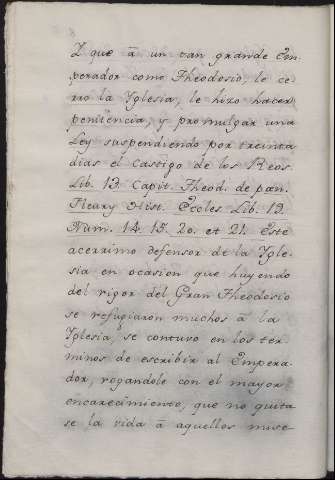 Y que â un tan grande Em-
perador como Theodosio, le ce-
rrò la Yglesia, le hizo hacer
penitencia, y promulgar una
Ley suspendiendo por treinta
dias el castigo de los Reos.
Lib. 13. Capit. Theod. de pœn.
Fleury Hist. Eccles. Lib. 19.
Num. 14. 15. 20. et 21. Este
acerrimo defensor de la Ygle-
sia en ocasion que huyendo
del rigor del Gran Theodosio
se refugiaron muchos â la
Yglesia, se contuvo en los ter-
minos de escribir al Empera-
dor, rogandole con el mayor
encarecimiento, que no quita-
se la vida â aquellos mise-